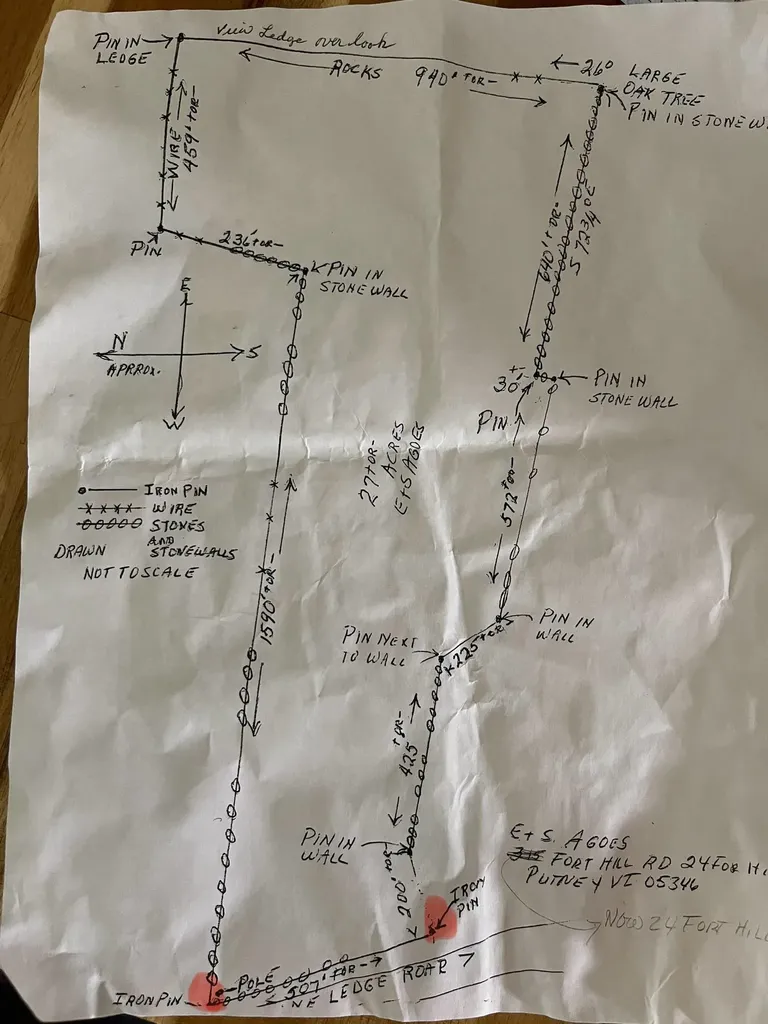 View Ledge overlook
PIN IN
LEDGE
ROCKS
940' + OR -
26°
LARGE
OAK TREE
PIN IN STONE W
WIRE
459' + OR -
640' + OR -
PIN
236' + OR -
PIN IN
STONE WALL
E
N
S
APPROX.
W
+-
30'
PIN
PIN IN
STONE WALL
27 + OR -
ACRES
E + S AGOES
572' + OR -
IRON PIN
WIRE
STONES
AND
STONEWALLS
DRAWN
NOT TO SCALE
1590' + OR -
PIN NEXT
TO WALL
225' + OR -
PIN IN
WALL
425' + OR -
PIN IN
WALL
200' + OR -
IRON
PIN
E + S. AGOES
FORT HILL RD 24 FOR H
PUTNEY VT 05346
NOW 24 FORT HILL
POLE
507' + OR -
IRON PIN
NE LEDGE ROAD